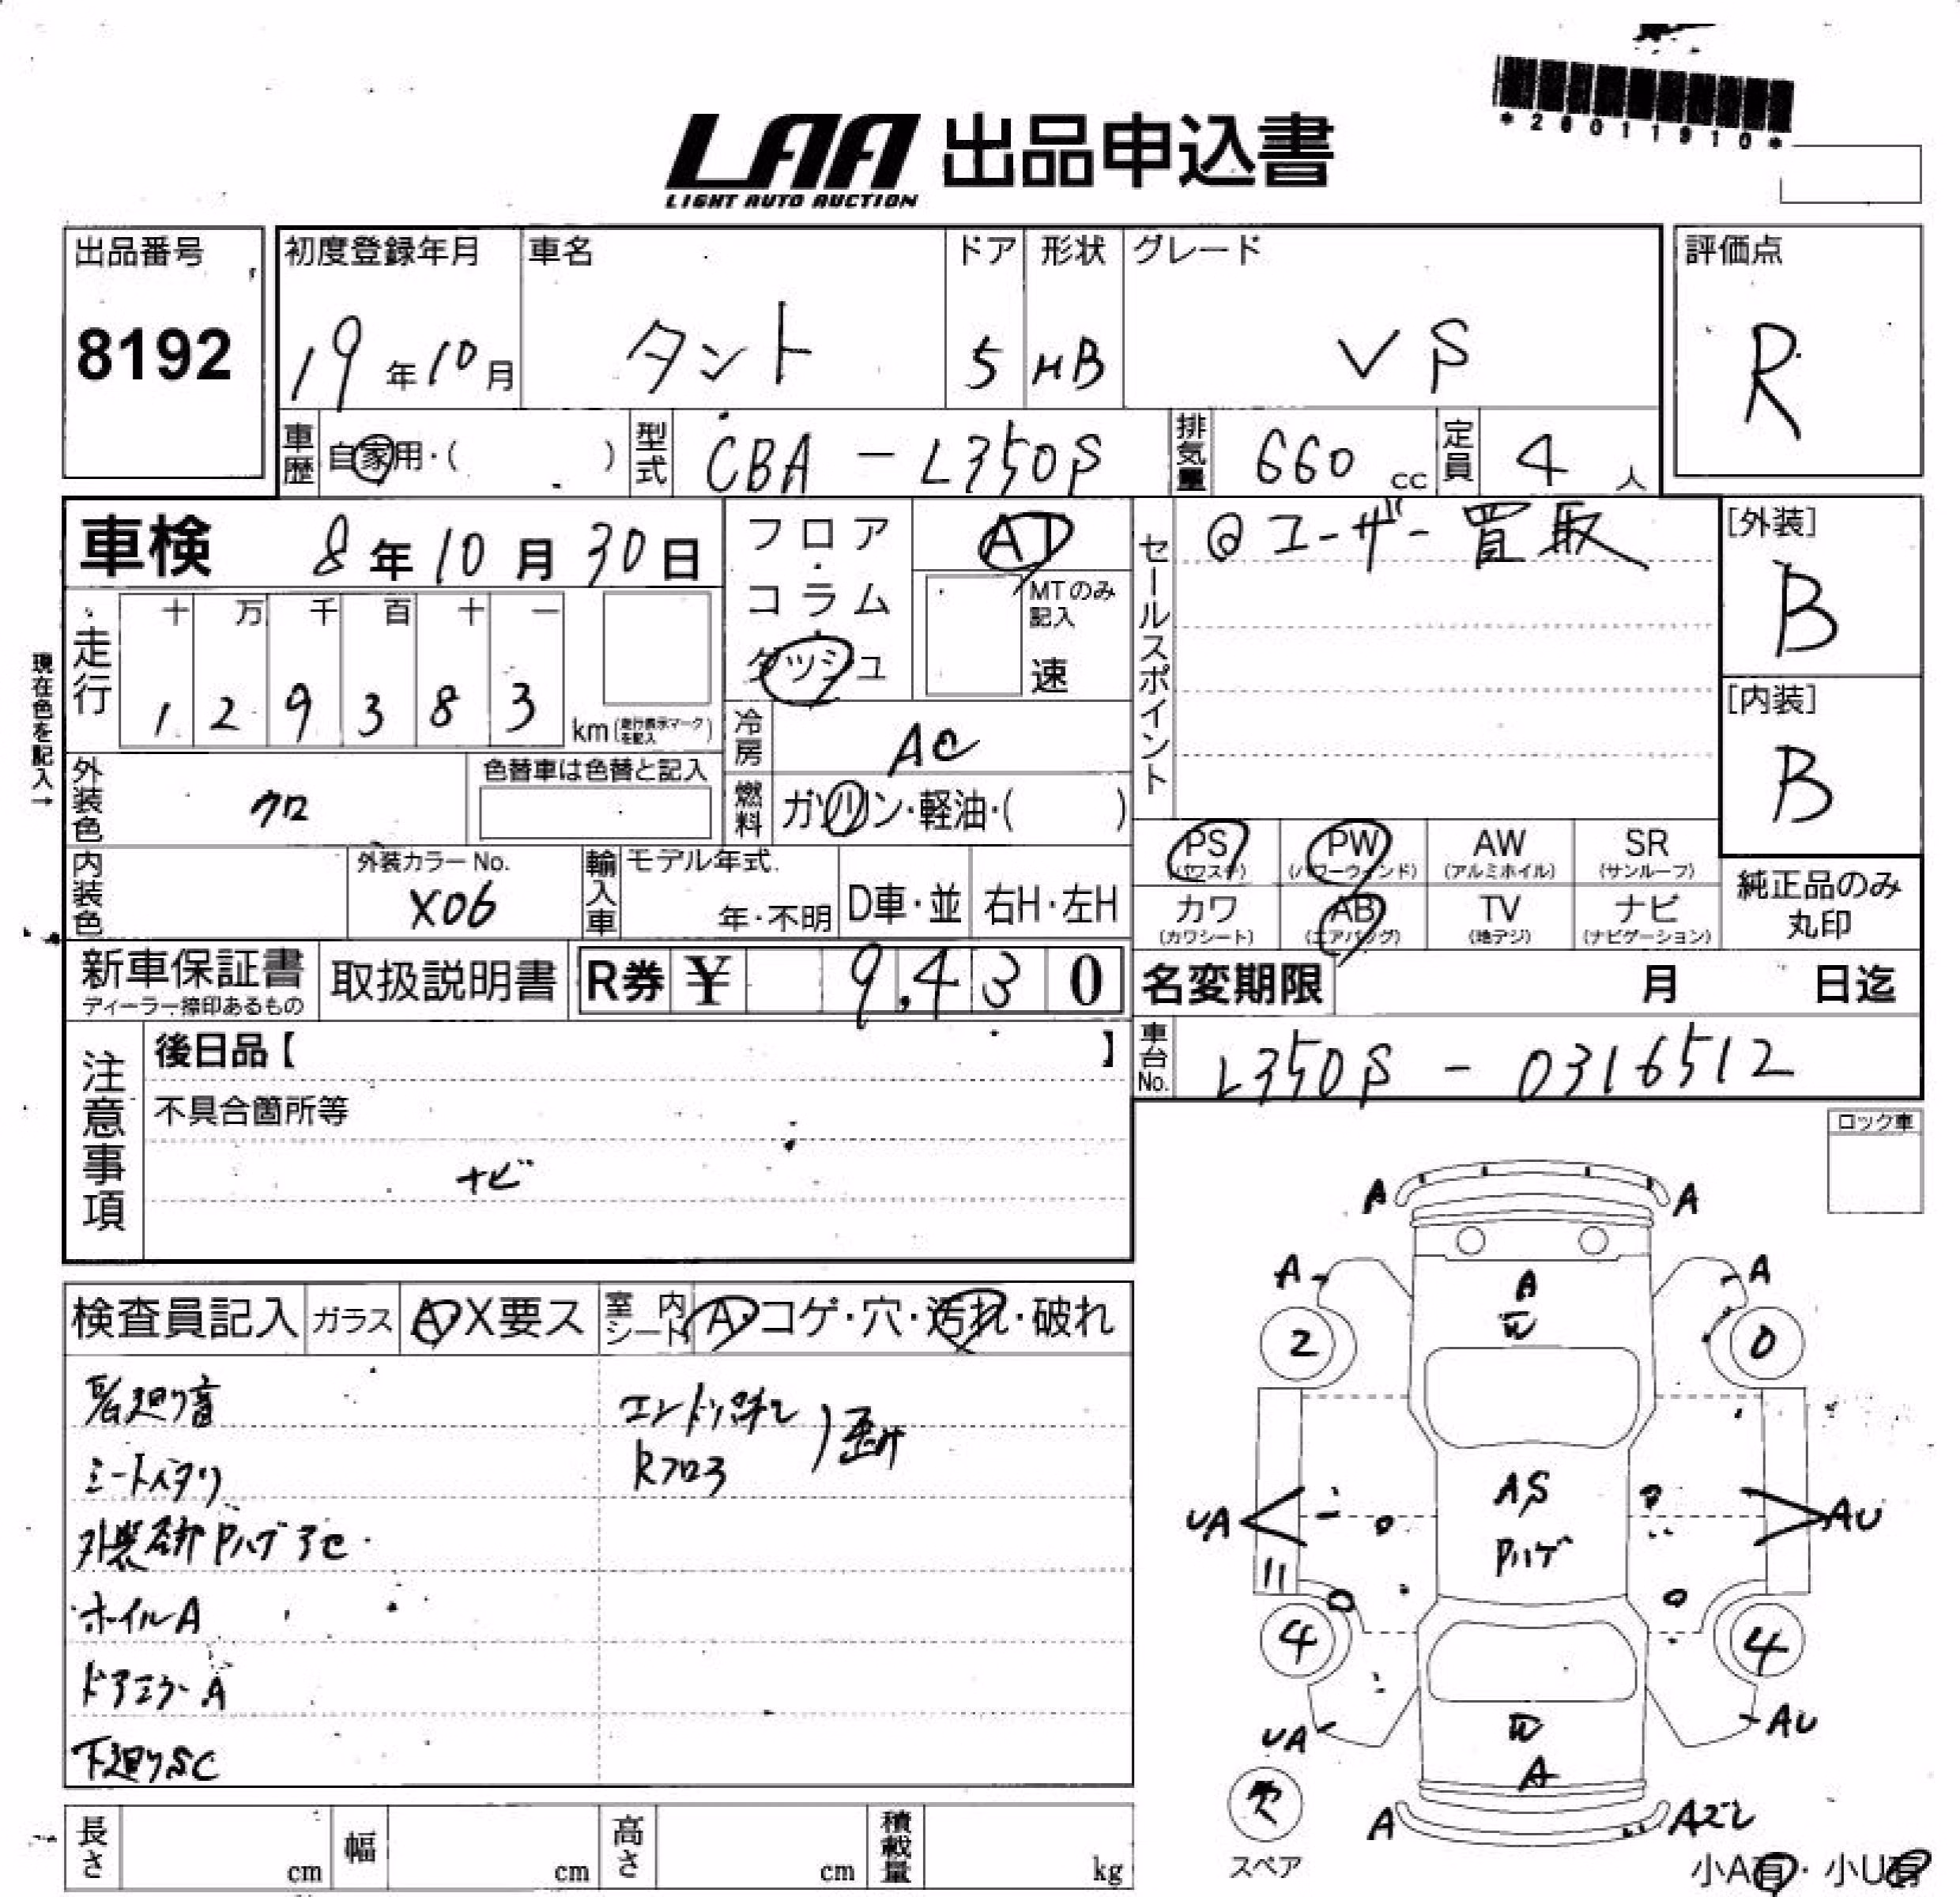 *26011910*
LAA 出品申込書
LIGHT AUTO AUCTION
出品番号
8192
初度登録年月
19年10月
車名
タント
ドア
5
形状
HB
グレード
VS
評価点
R
車歴
自家用・( )
型式
CBA-L350S
排気量
660 cc
定員
4 人
車検 8年10月30日
フロア
コラム
ダッシュ
AT
MTのみ記入
速
セールスポイント
◎ユーザー買取
[外装]
B
[内装]
B
現在色を記入→
走行
十 万 千 百 十 一
1 2 9 3 8 3
km(走行表示マークを記入)
冷房
AC
外装色
クロ
色替車は色替と記入
燃料
ガソリン・軽油・( )
内装色
外装カラーNo.
X06
輸入車
モデル年式
年・不明
D車・並
右H・左H
PS AW PW SR
(パワステ) (パワーウィンド) (アルミホイル) (サンルーフ)
カワ AB TV ナビ
(カワシート) (エアバッグ) (地デジ) (ナビゲーション)
純正品のみ
丸印
新車保証書
ディーラー捺印あるもの
取扱説明書
R券 ¥ 9,430
名変期限 月 日迄
注意事項
後日品【 】
不具合箇所等
ナビ
車台No.
L350S - 0316512
ロック車
検査員記入
ガラス
A X要ス
室内シート
A・コゲ・穴・汚れ・破れ
足廻り音
シートヘタリ
外装各部Pハゲ
ホイルA
ドアミラーA
下廻りSC
エンドパネル
Rフロア
A A
A A
A
2 0
UA AS AU
Pハゲ
4 4
UA AU
A
A Aズレ
欠
スペア
小A有・小U有
長さ cm
幅 cm
高さ cm
積載量 kg